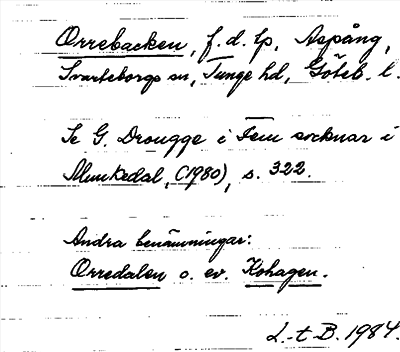 Orrebacken, f.d. lp, Aspång,
Svarteborgs sn, Tunge hd, Göteb. l.
Se G. Drougge i Fem socknar i
Munkedal, (1980), s. 322.
Andra benämningar:
Orredalen o. ev. Kohagen.
L.-t B. 1984.